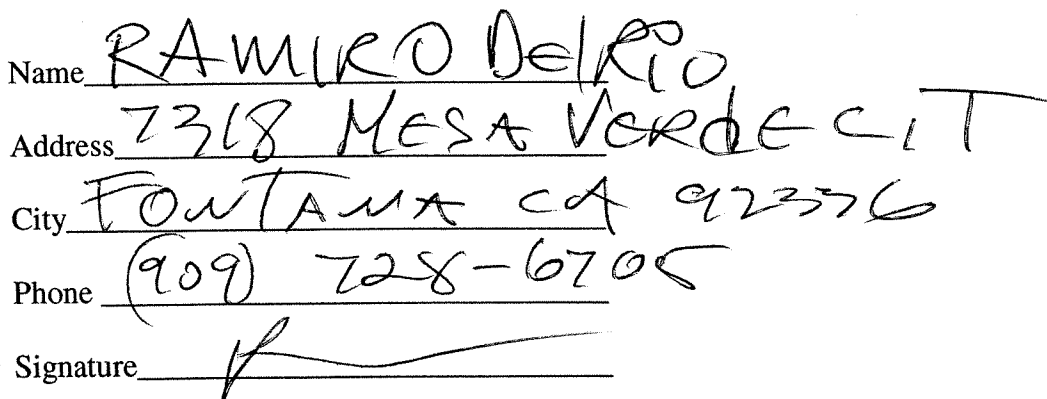 Name RAMIRO DelRio
Address 7318 MESA VERdE CiT
City FONTANA CA 92336
Phone (909) 728-6705
Signature